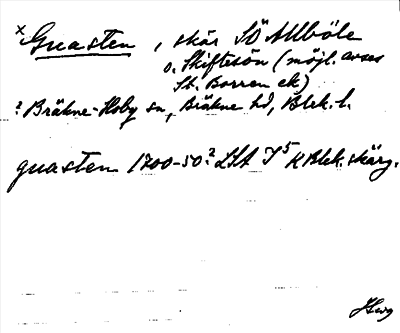 x Gnasten, skär SÖ Allböle
o. Skiftesön (möjl. avses
St. Borren ek)
? Bräkne-Hoby sn, Bräkne hd, Blek. l.
gnasten 1700-50? LSA I 5 K Blek. skärg.